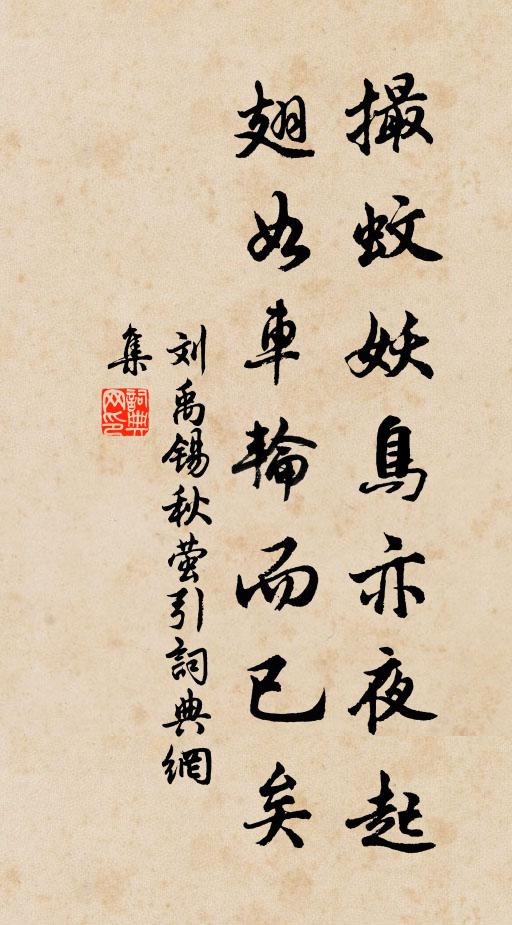 撮蚊妖鳥亦夜起
翅如車輪而已矣
刘禹锡秋萤引詞典網
集
詞典网印